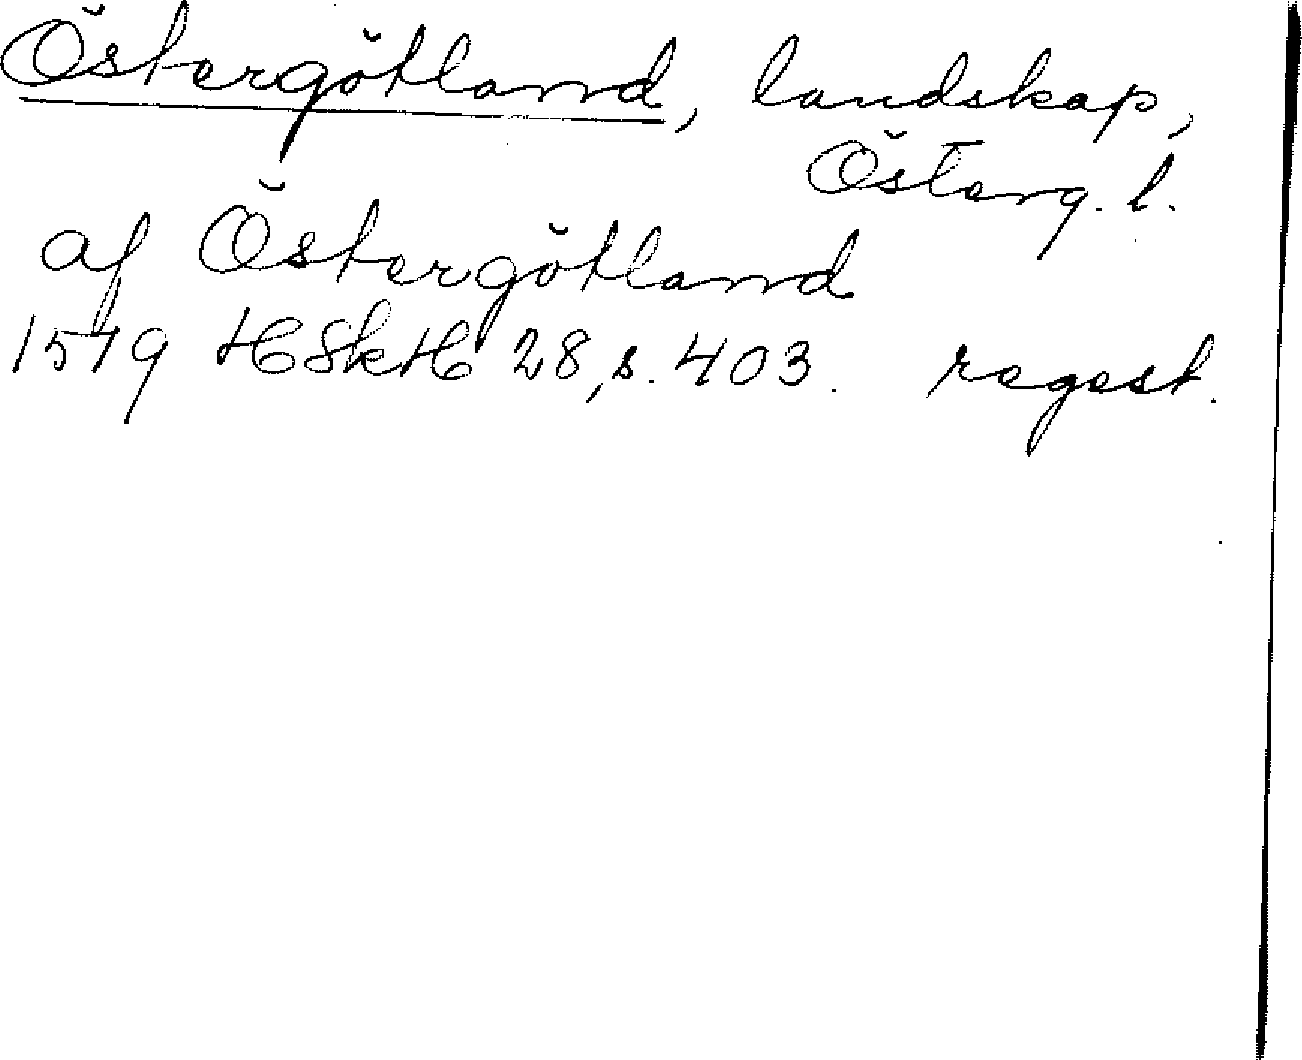 Östergötland, landskap,
Österg. l.
af Östergötland
1579 HSkH 28, s. 403. regest.